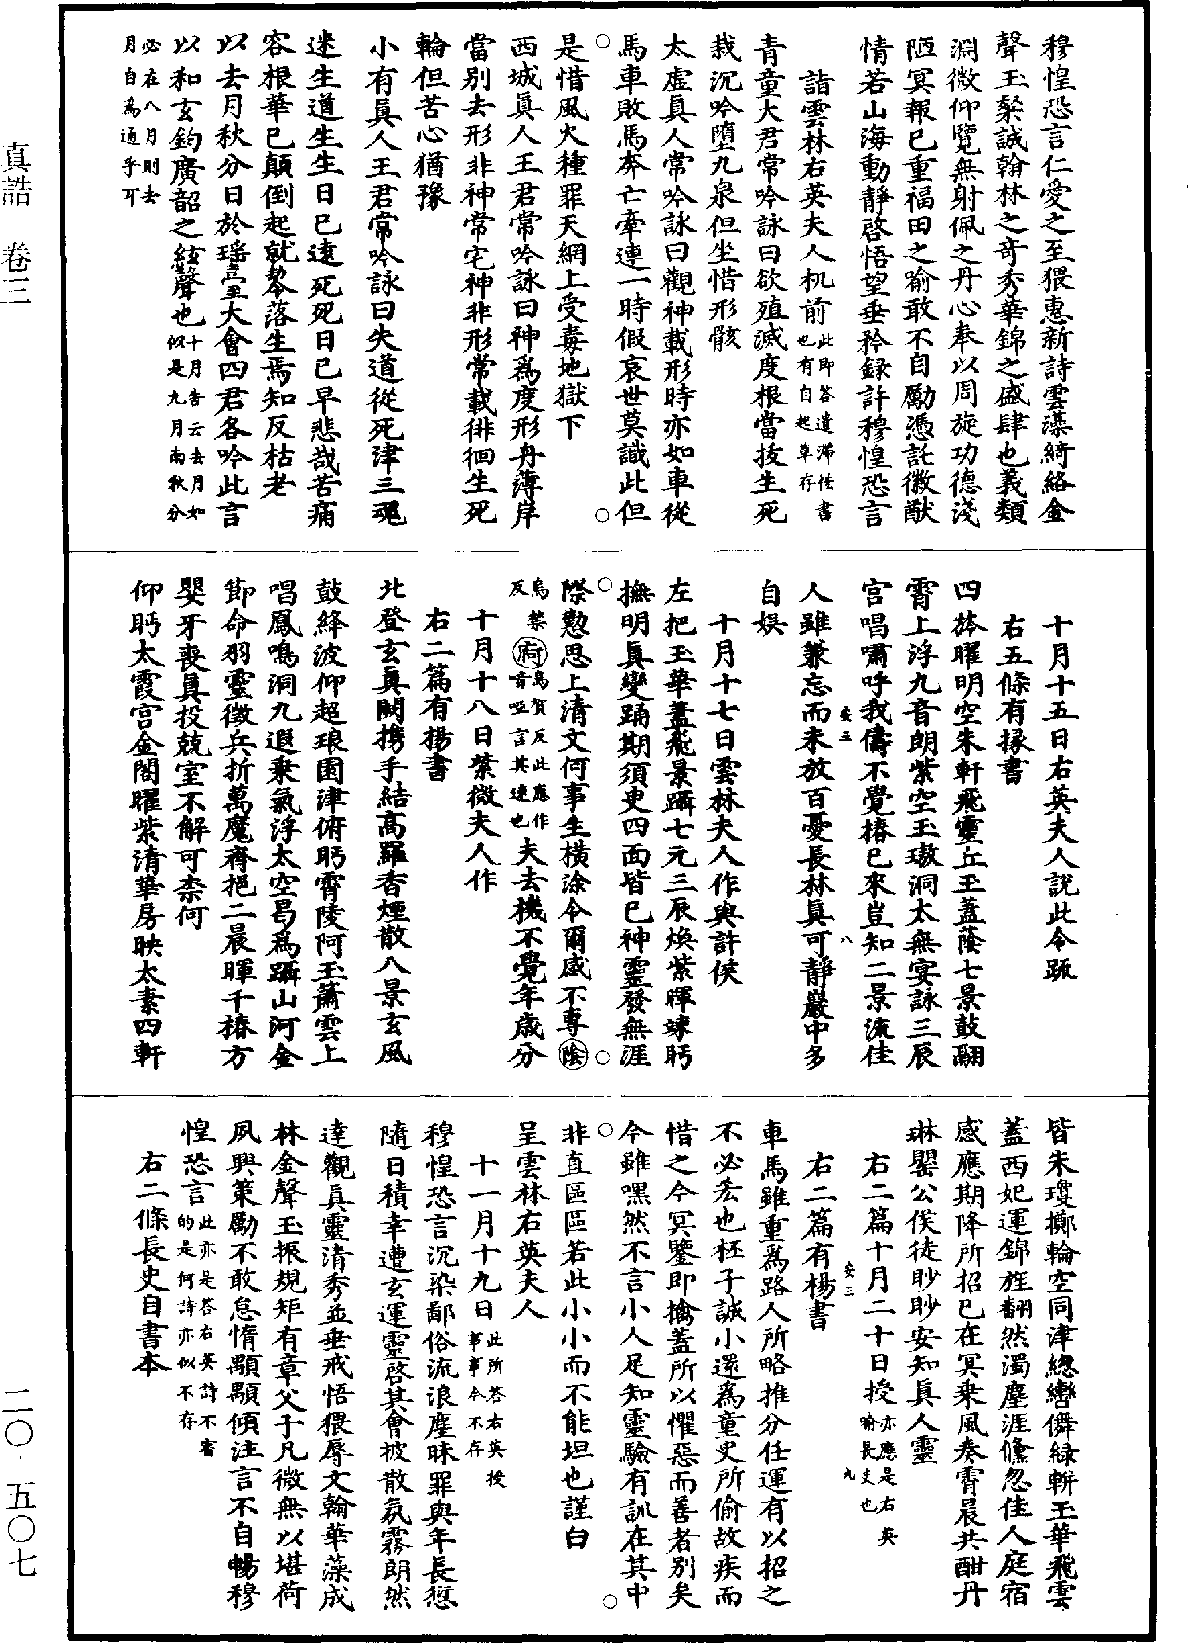 穆惶恐言仁愛之至猥惠新詩雲藻綺絡金
聲玉粲誠翰林之奇秀華錦之盛肆也義類
淵微仰覽無射佩之丹心奉以周旋功德淺
陋冥報已重福田之喻敢不自勵憑託微猷
情若山海動靜啓悟望垂矜録許穆惶恐言
詣雲林右英夫人机前此即答遣滯住書也有自起草存
青童大君常吟詠曰欲殖滅度根當拔生死
栽沉吟墮九泉但坐惜形骸
太虛真人常吟詠曰觀神載形時亦如車從
馬車敗馬奔亡牽連一時假哀世莫識此但
是惜風火種罪天網上受毒地獄下
西城真人王君常吟詠曰神爲度形舟薄岸
當別去形非神常宅神非形常載徘徊生死
輪但苦心猶豫
小有真人王君常吟詠曰失道從死津三魂
迷生道生生日已遠死死日已早悲哉苦痛
容根華已顛倒起就零落生焉知反枯老
以去月秋分日於瑤臺大會四君各吟此言
以和玄鈞廣韶之絃聲也十月告云去月如似是九月南秋分
必在八月則去月自爲通乎可
十月十五日右英夫人說此令疏
右五條有掾書
四旌曜明空朱軒飛靈丘玉蓋蔭七景鼓翮
霄上浮九音朗紫空玉璈洞太無宴詠三辰
宮唱嘯呼我儔不覺椿已來豈知二景流佳
人雖兼忘而未放百憂長林真可靜巖中多
自娱
十月十七日雲林夫人作與許侯
左把玉華蓋飛景躡七元三辰煥紫暉竦眄
撫明真變踊期須臾四面皆已神靈發無涯
際懃思上清文何事生横塗令爾感不專陰
烏禁反府烏賀反此應作音啞言其速也夫去機不覺年歲分
十月十八日紫微夫人作
右二篇有楊書
北登玄真闕携手結高羅香煙散八景玄風
鼓絳波仰超琅園津俯眄霄陵阿玉簫雲上
唱鳳鳴洞九遐乗氣浮太空曷爲躡山河金
節命羽靈徵兵折萬魔齊挹二晨暉千椿方
嬰牙喪真投競室不解可柰何
仰眄太霞宮金閣曜紫清華房映太素四軒
皆朱瓊擲輪空同津總轡儛緑輧玉華飛雲
蓋西妃運錦旌翻然濁塵涯儵忽佳人庭宿
感應期降所招已在冥乗風奏霄晨共酣丹
琳罌公侯徒眇眇安知真人靈
右二篇十月二十日授亦應是右英喻長史也
右二篇有楊書
車馬雖重爲路人所略推分任運有以招之
不必宏也柸子誠小還爲童史所偷故疾而
惜之今冥鑒即擒蓋所以懼惡而善者別矣
今雖嘿然不言小人足知靈驗有訓在其中
非直區區若此小小而不能坦也謹白
呈雲林右英夫人
十一月十九日此所答右英授事事今不存
穆惶恐言沉染鄙俗流浪塵昧罪與年長愆
隨日積幸遭玄運靈啓其會披散氛霧朗然
達觀真靈清秀並垂戒悟猥辱文翰華藻成
林金聲玉振規矩有章父子凡微無以堪荷
夙興策勵不敢怠惰顒顒傾注言不自暢穆
惶恐言此亦是答右英詩不審的是何詩亦似不存
右二條長史自書本
真誥　卷三
二〇·五〇七